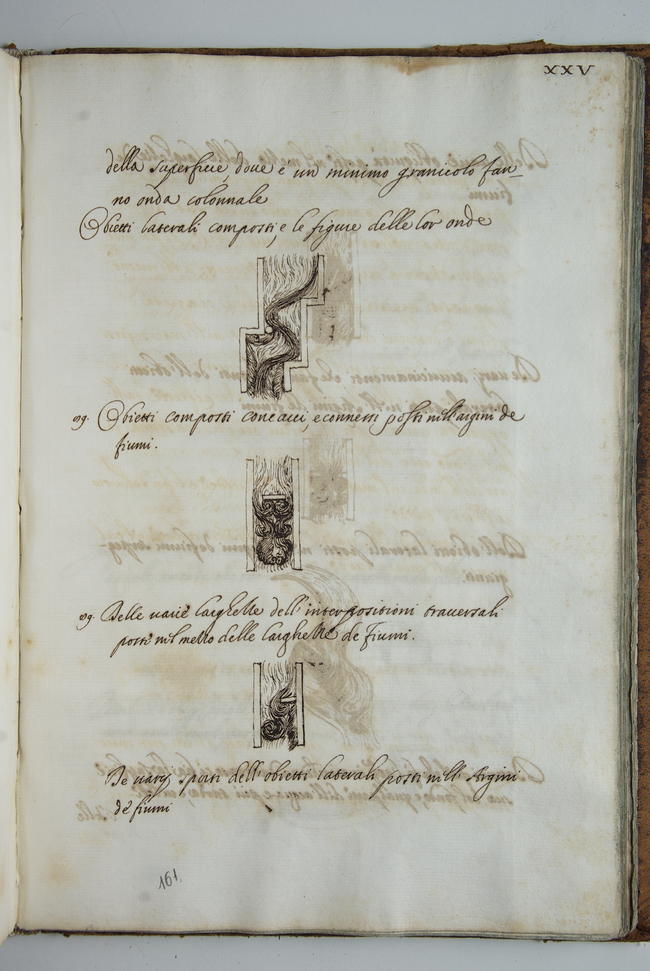 XXV
della superficie doue è un minimo granicolo fan=
no onda colonnale
Obietti laterali composti, e le figure delle lor onde
89. Obietti composti concaui, e connessi posti nell'argini de
fiumi.
89. Delle uarie larghezze dell'interpositioni trauersali
posti nel mezzo delle larghezze de fiumi.
De uarij sporti dell'obietti laterali posti nell'Argini
de fiumi
161